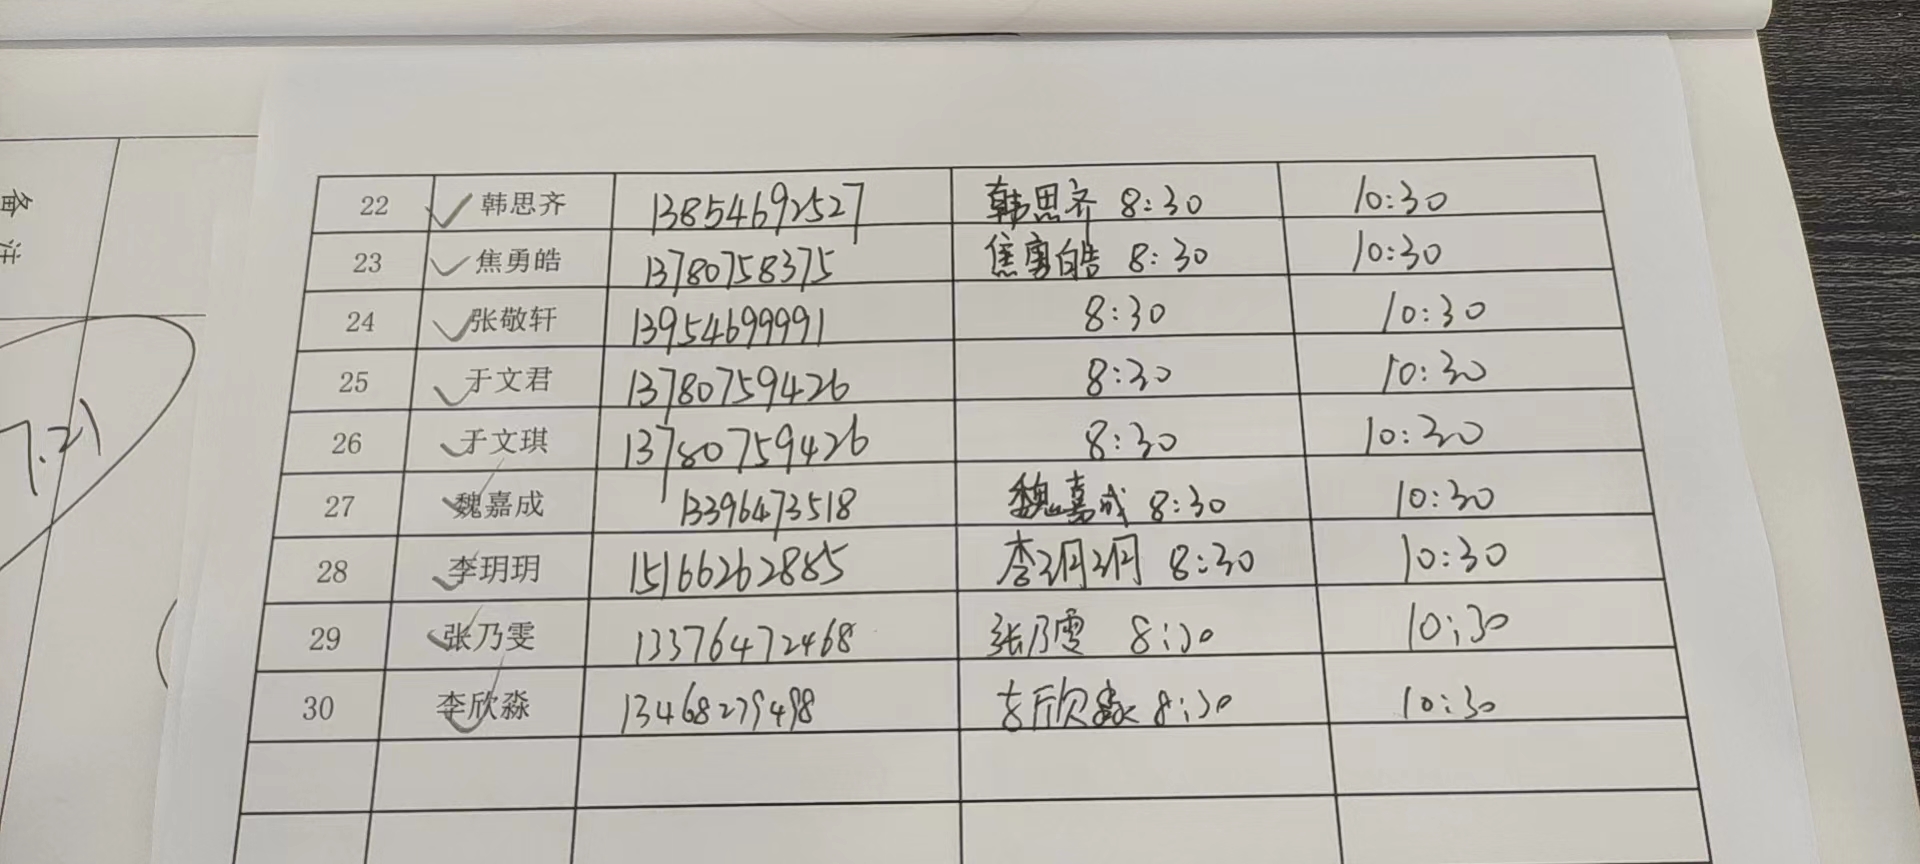 备注
7.21
22 韩思齐 13854692527 韩思齐 8:30 10:30
23 焦勇皓 13780758375 焦勇皓 8:30 10:30
24 张敬轩 13954699991 8:30 10:30
25 于文君 13780759426 8:30 10:30
26 于文琪 13780759426 8:30 10:30
27 魏嘉成 13396473518 魏嘉成 8:30 10:30
28 李玥玥 15166262885 李玥玥 8:30 10:30
29 张乃雯 13376472468 张乃雯 8:30 10:30
30 李欣淼 13468279498 李欣淼 8:30 10:30